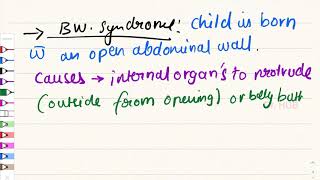 → BW. Syndrome: child is born
w̄ an open abdominal wall.
Causes → internal organ's to protrude
(outside from opening) or belly butt